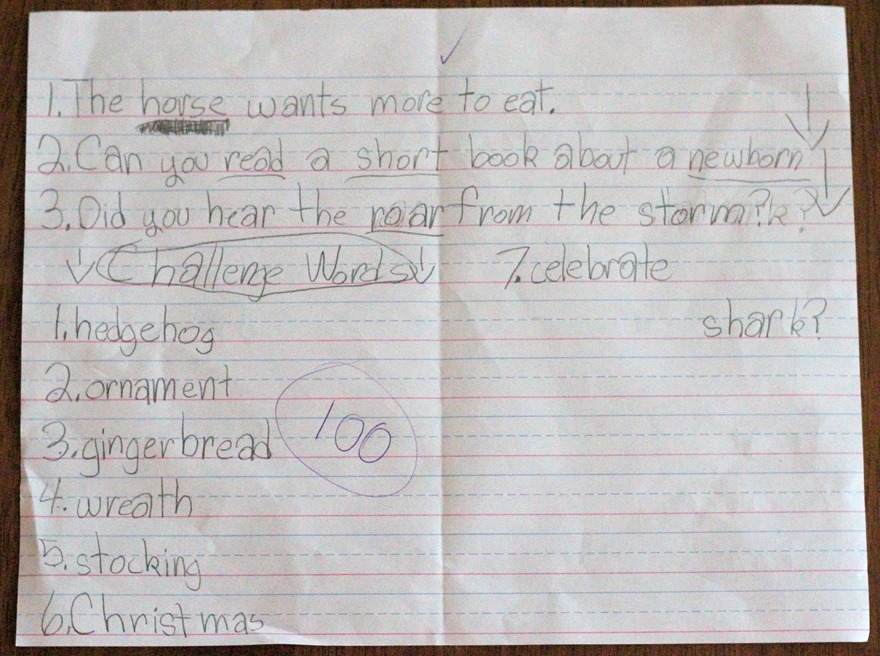 1. The horse wants more to eat.
2. Can you read a short book about a newborn
3. Did you hear the roar from the storm?
Challenge Words
7. celebrate
1. hedgehog
shark?
2. ornament
3. gingerbread
100
4. wreath
5. stocking
6. Christmas